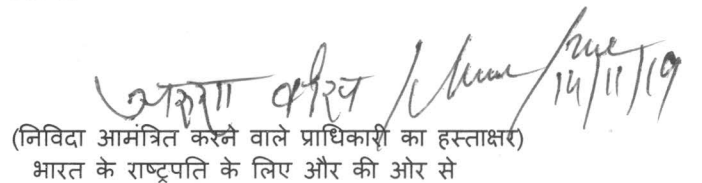 अरुणा 14/11/19
(निविदा आमंत्रित करने वाले प्राधिकारी का हस्ताक्षर)
भारत के राष्ट्रपति के लिए और की ओर से